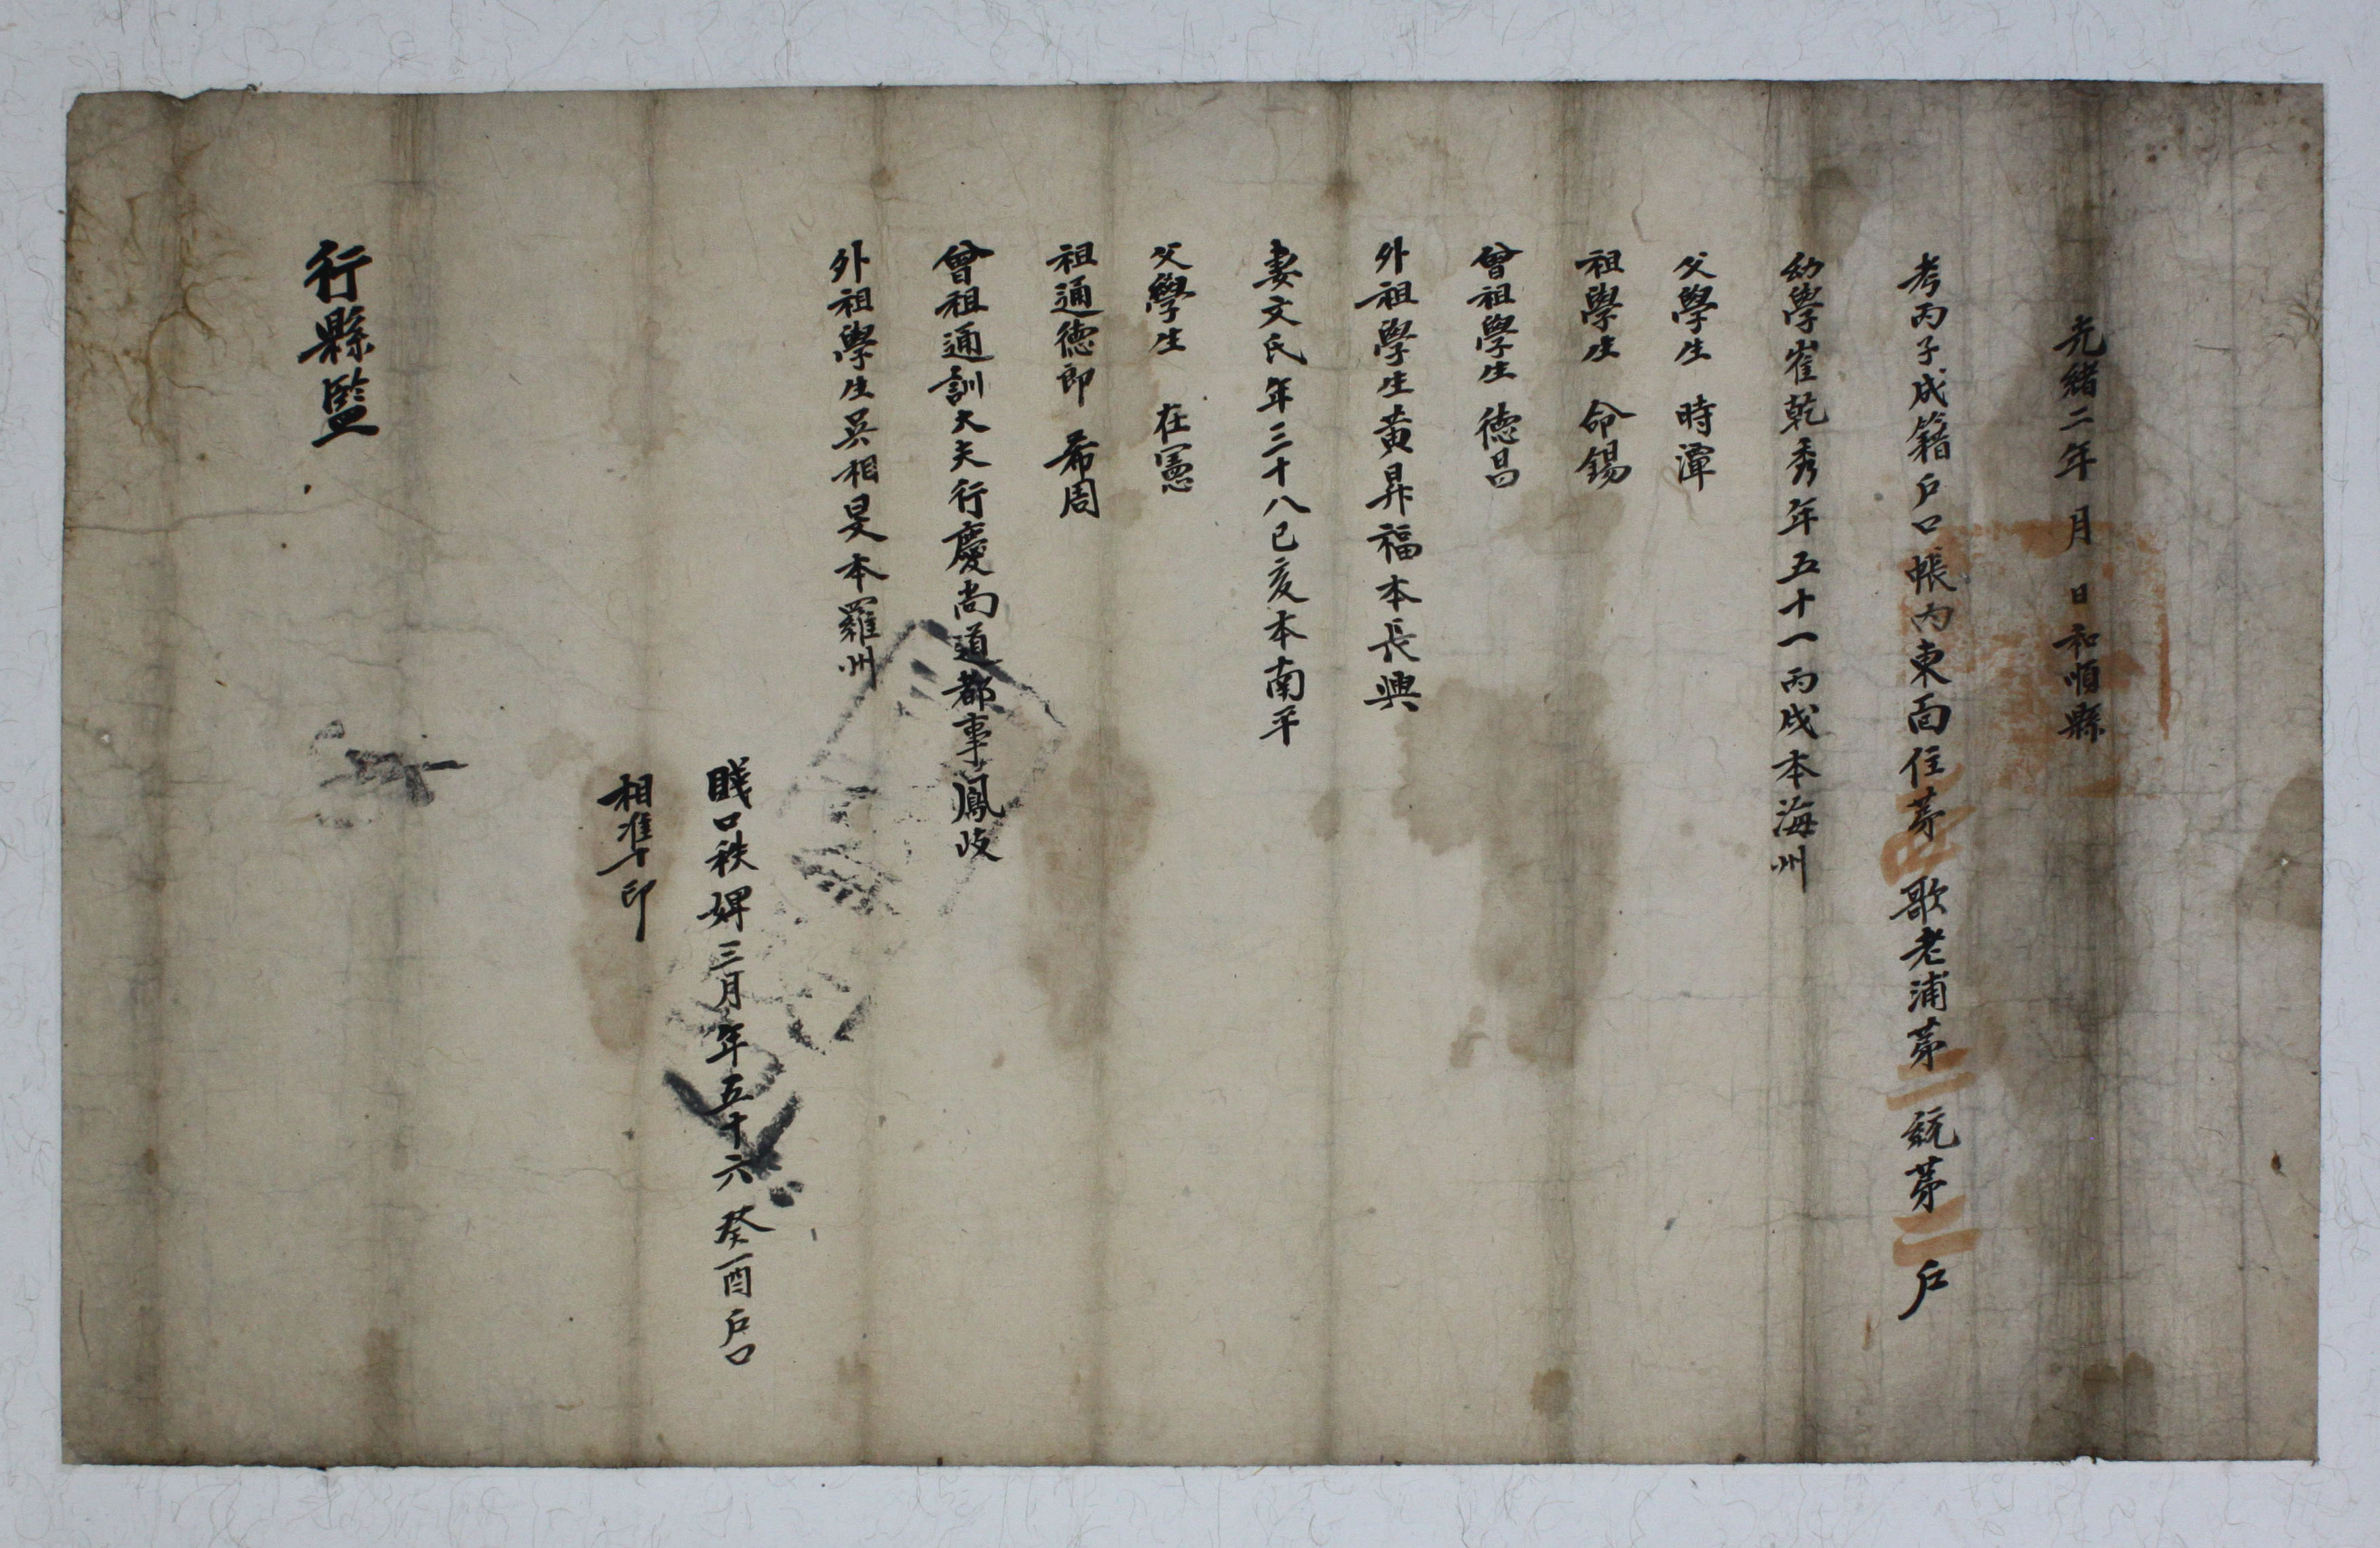 光緖二年 月 日 和順縣
考丙子成籍戶口帳內東面住苐四歌老浦苐一統苐二戶
幼學崔乾秀年五十一丙戌本海州
父學生 時潭
祖學生 命錫
曾祖學生 德昌
外祖學生黃昇福本長興
妻文氏年三十八己亥本南平
父學生 在憲
祖通德郎 希周
曾祖通訓大夫行慶尙道都事鳳岐
外祖學生吳相旻本羅州
賤口秩婢三月年五十六 癸酉戶口
相準印
行縣監